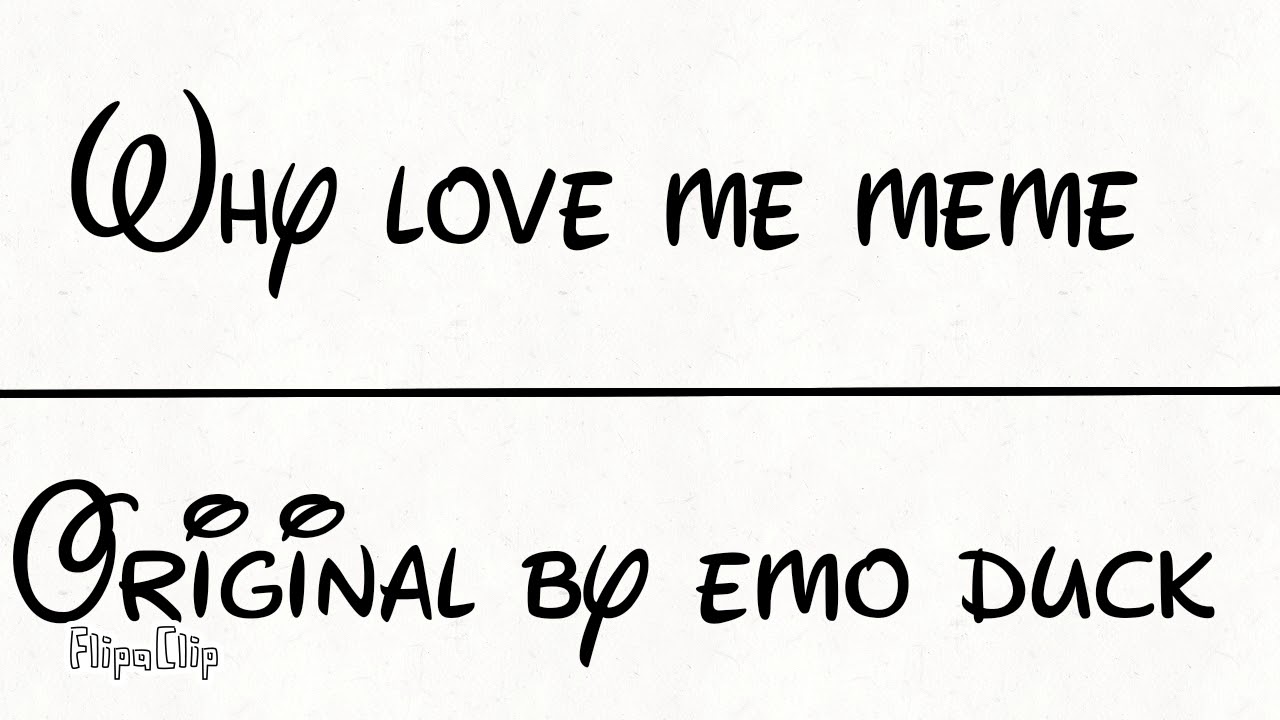 Why love me meme
Original by emo duck
FlipaClip